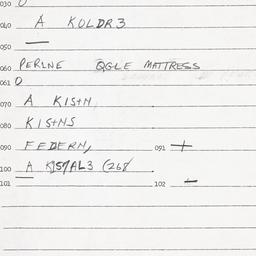 030 0
040 A KOLDR3
050 —
060 PERLNE OGLE MATTRESS
061 0
070 A KISTN
080 KISTNS
090 FEDERN, 091 +
100 A KISTAL3 (268
101 — 102 —